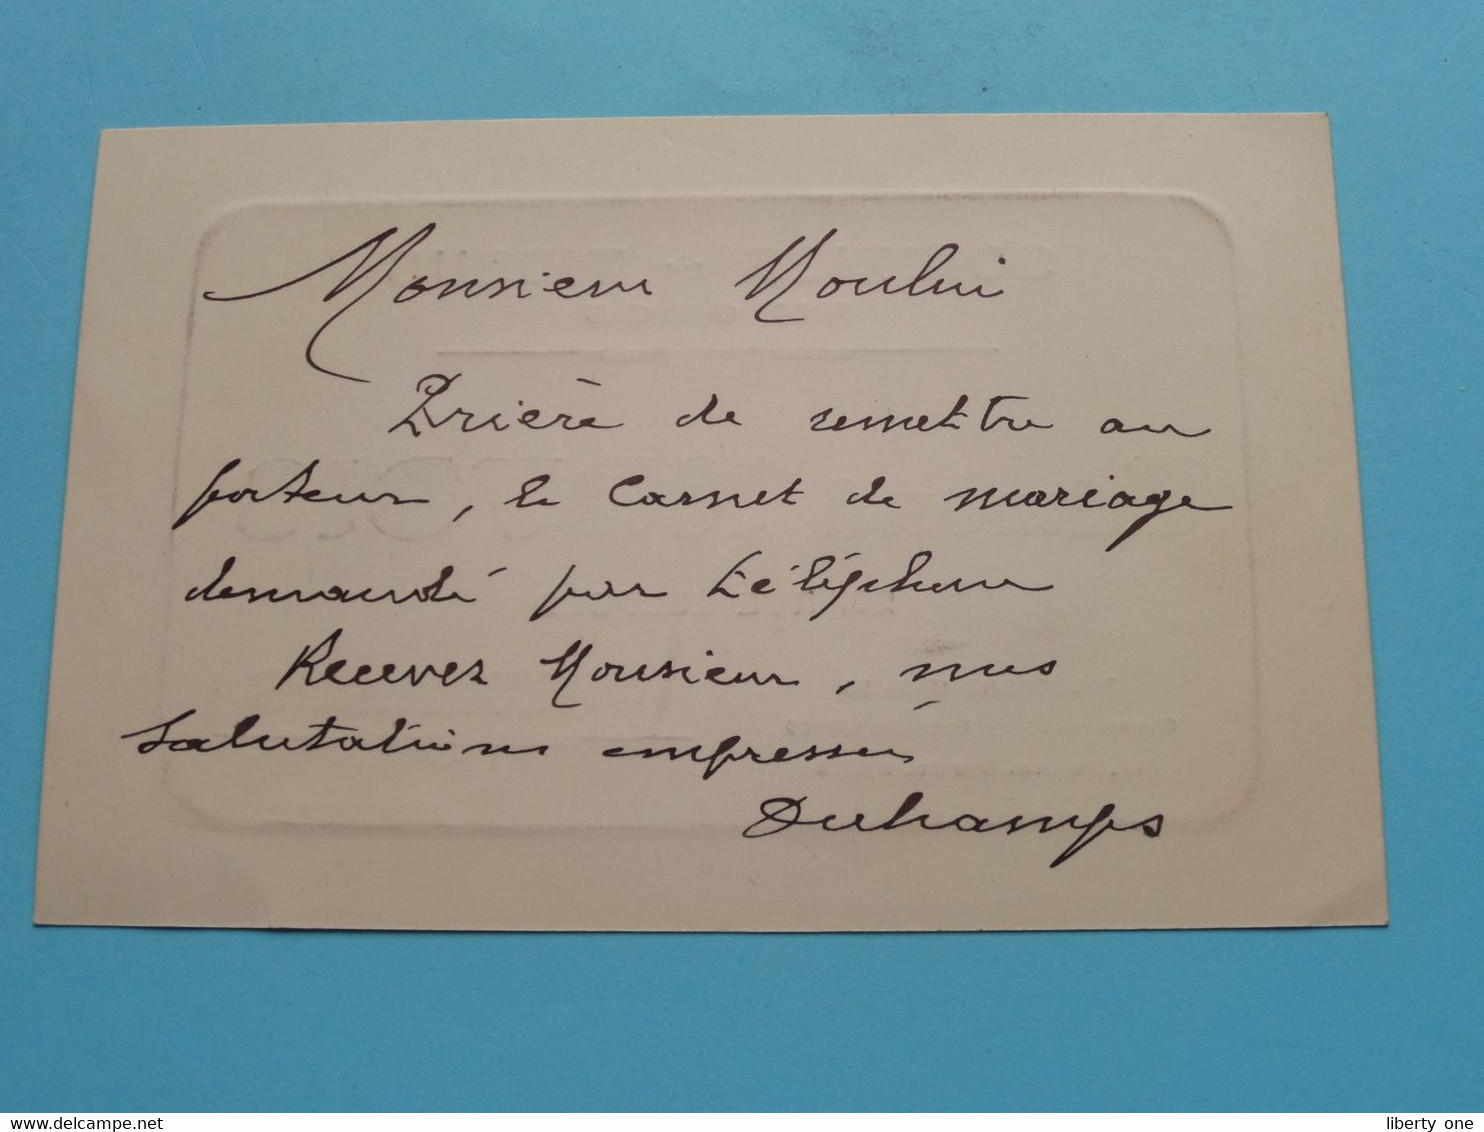 Monsieur Moulin
Prière de remettre au
porteur, le Carnet de mariage
demandé par téléphone
Recevez Monsieur, nos
salutations empressées
Duhamps
delcampe.net
liberty one